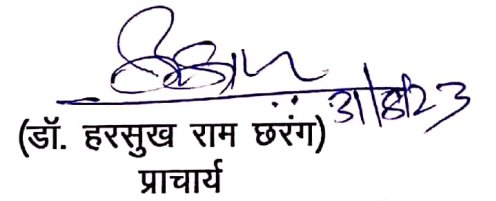 31/8/23
(डॉ. हरसुख राम छरंग)
प्राचार्य